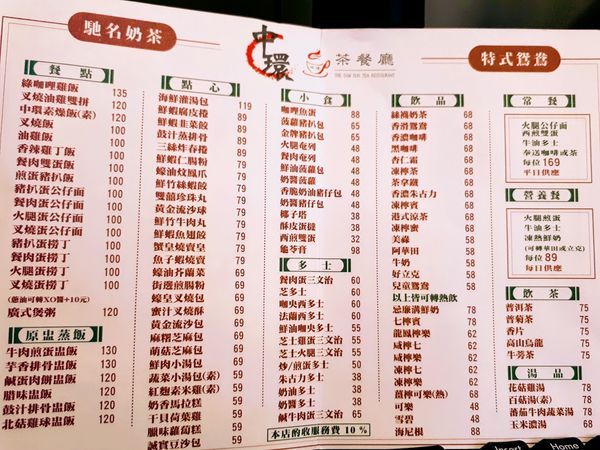 馳名奶茶
中環
茶餐廳
特式鴛鴦
餐點
綠咖哩雞飯 135
叉燒油雞雙拼 120
中環素燥飯(素) 120
叉燒飯 100
油雞飯 100
香辣雞丁飯 100
餐肉雙蛋飯 100
煎蛋豬扒飯 100
豬扒蛋公仔面 100
餐肉蛋公仔面 100
火腿蛋公仔面 100
叉燒蛋公仔面 100
豬扒蛋撈丁 100
餐肉蛋撈丁 100
火腿蛋撈丁 100
叉燒蛋撈丁 100
(蔥油可轉XO醬+10元)
廣式煲粥 120
原盅蒸飯
牛肉煎蛋盅飯 130
芋香排骨盅飯 130
鹹蛋肉餅盅飯 120
腊味盅飯 120
豉汁排骨盅飯 120
北菇雞球盅飯 120
點心
海鮮灌湯包 119
鮮蝦腐皮捲 89
鮮蝦韭菜餃 89
豉汁蒸排骨 89
三絲炸春捲 89
鮮蝦仁腸粉 79
蠔油炆鳳爪 79
鮮竹絲蝦餃 79
雙囍珍珠丸 79
黃金流沙球 79
鮮竹牛肉丸 79
鮮蝦魚翅餃 79
蟹皇燒賣皇 79
魚子蝦燒賣 79
蠔油芥蘭菜 79
街邊煎腸粉 69
蠔皇叉燒包 69
蜜汁叉燒酥 69
黃金流沙包 69
麻糬芝麻包 69
萌菇芝麻包 69
鮮肉小湯包 69
蔬菜小湯包(素) 69
紅麴素米雞(素) 69
奶香馬拉糕 59
干貝荷葉雞 59
臘味蘿蔔糕 59
誠實豆沙包 59
小食
咖哩魚蛋 88
菠蘿豬扒包 65
金牌豬扒包 65
火腿奄列 48
餐肉奄列 48
鮮油菠蘿 48
奶醬菠蘿 48
香脆奶油豬仔包 48
奶醬豬仔包 48
椰子塔 38
酥皮蛋撻 38
西煎雙蛋 32
龜苓膏 98
多士
餐肉蛋三文治 60
芝多士 60
咖央西多士 60
法蘭西多士 60
鮮油咖央多士 50
芝士雞蛋三文治 50
芝士火腿三文治 50
炒/煎蛋多士 50
朱古力多士 50
奶油多士 50
奶醬多士 50
鹹牛肉蛋三文治 65
本店酌收服務費 10 %
飲品
絲襪奶茶 68
香滑鴛鴦 68
香濃咖啡 68
黑咖啡 68
杏仁霜 68
凍檸茶 68
茶拿鐵 68
香濃朱古力 68
凍檸賓 68
港式涼茶 68
凍檸蜜 68
美祿 68
阿華田 68
牛奶 68
好立克 68
兒童鴛鴦 68
以上皆可轉熱飲
忌廉溝鮮奶 78
七檸賓 78
龍鳳檸樂 78
咸檸樂 78
咸檸七 78
凍檸七 78
凍檸樂 78
薑檸可樂(熱) 68
可樂 48
雪碧 48
海尼根 88
常餐
火腿公仔面
西煎雙蛋
牛油多士
奉送咖啡或茶
每位169
平日供應
營養餐
火腿煎蛋
牛油多士
凍熱鮮奶
(可轉華田或立克)
每位89
每日供應
飲茶
普洱茶 75
普菊茶 75
香片 75
高山烏龍 75
牛蒡茶 75
湯品
花菇雞湯 78
百菇湯(素) 78
蕃茄牛肉蔬菜湯 78
玉米濃湯 68
Insert
Home